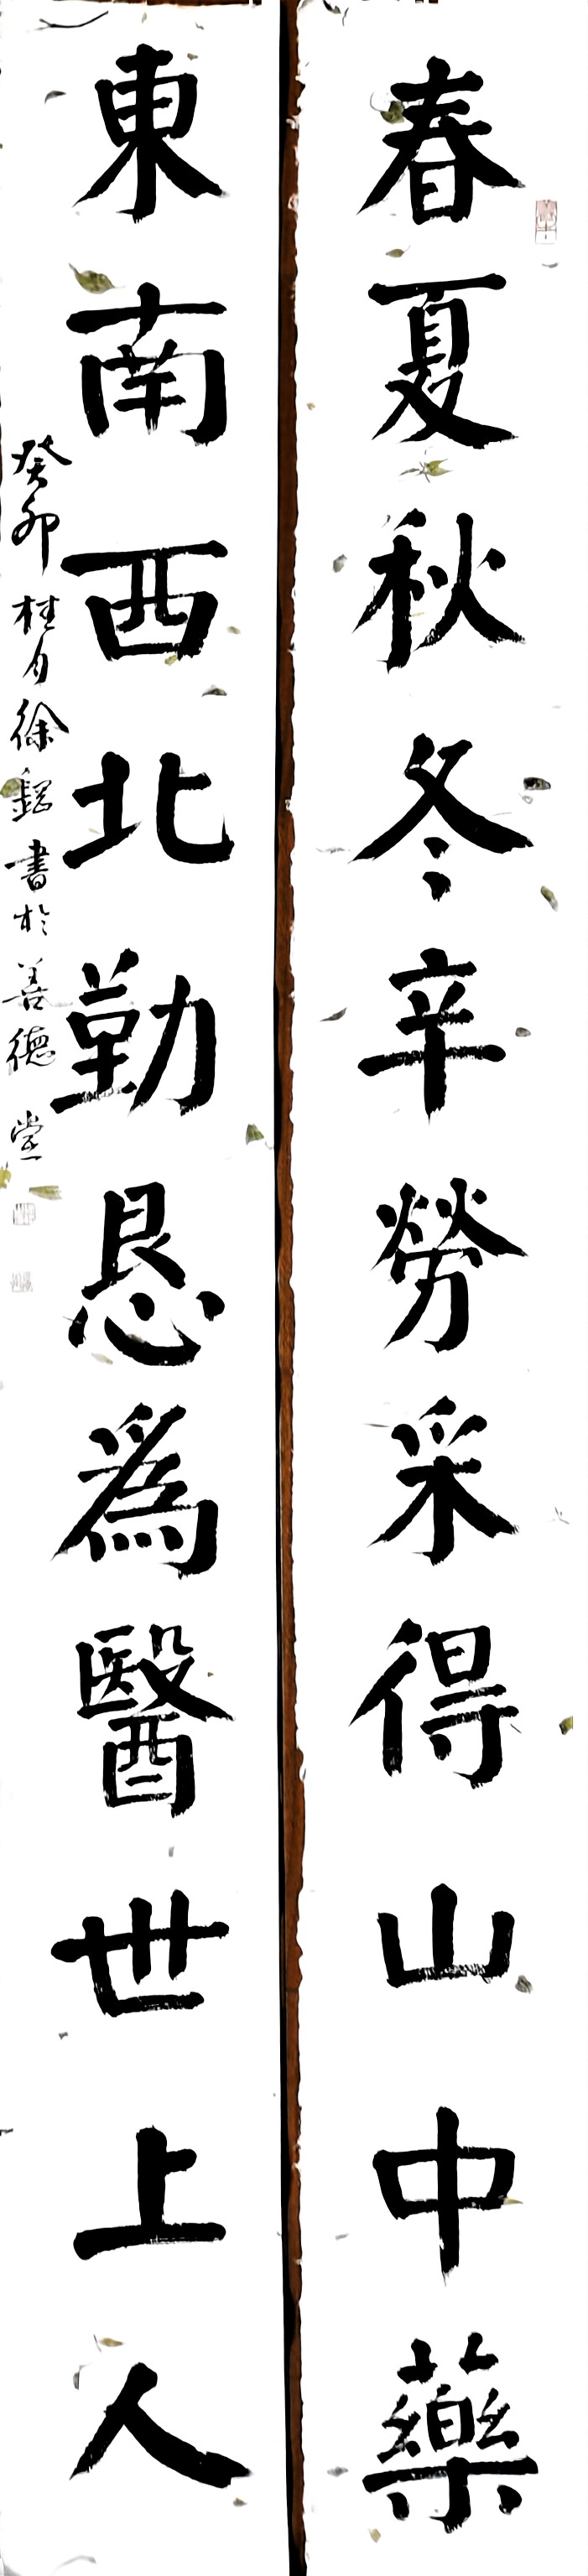 春夏秋冬辛勞采得山中藥
東南西北勤恳為醫世上人
癸卯桂月徐鋼書於善德堂